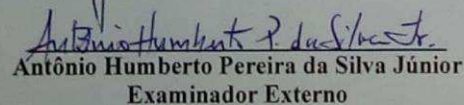 Antônio Humberto P. da Silva Jr.
Antônio Humberto Pereira da Silva Júnior
Examinador Externo